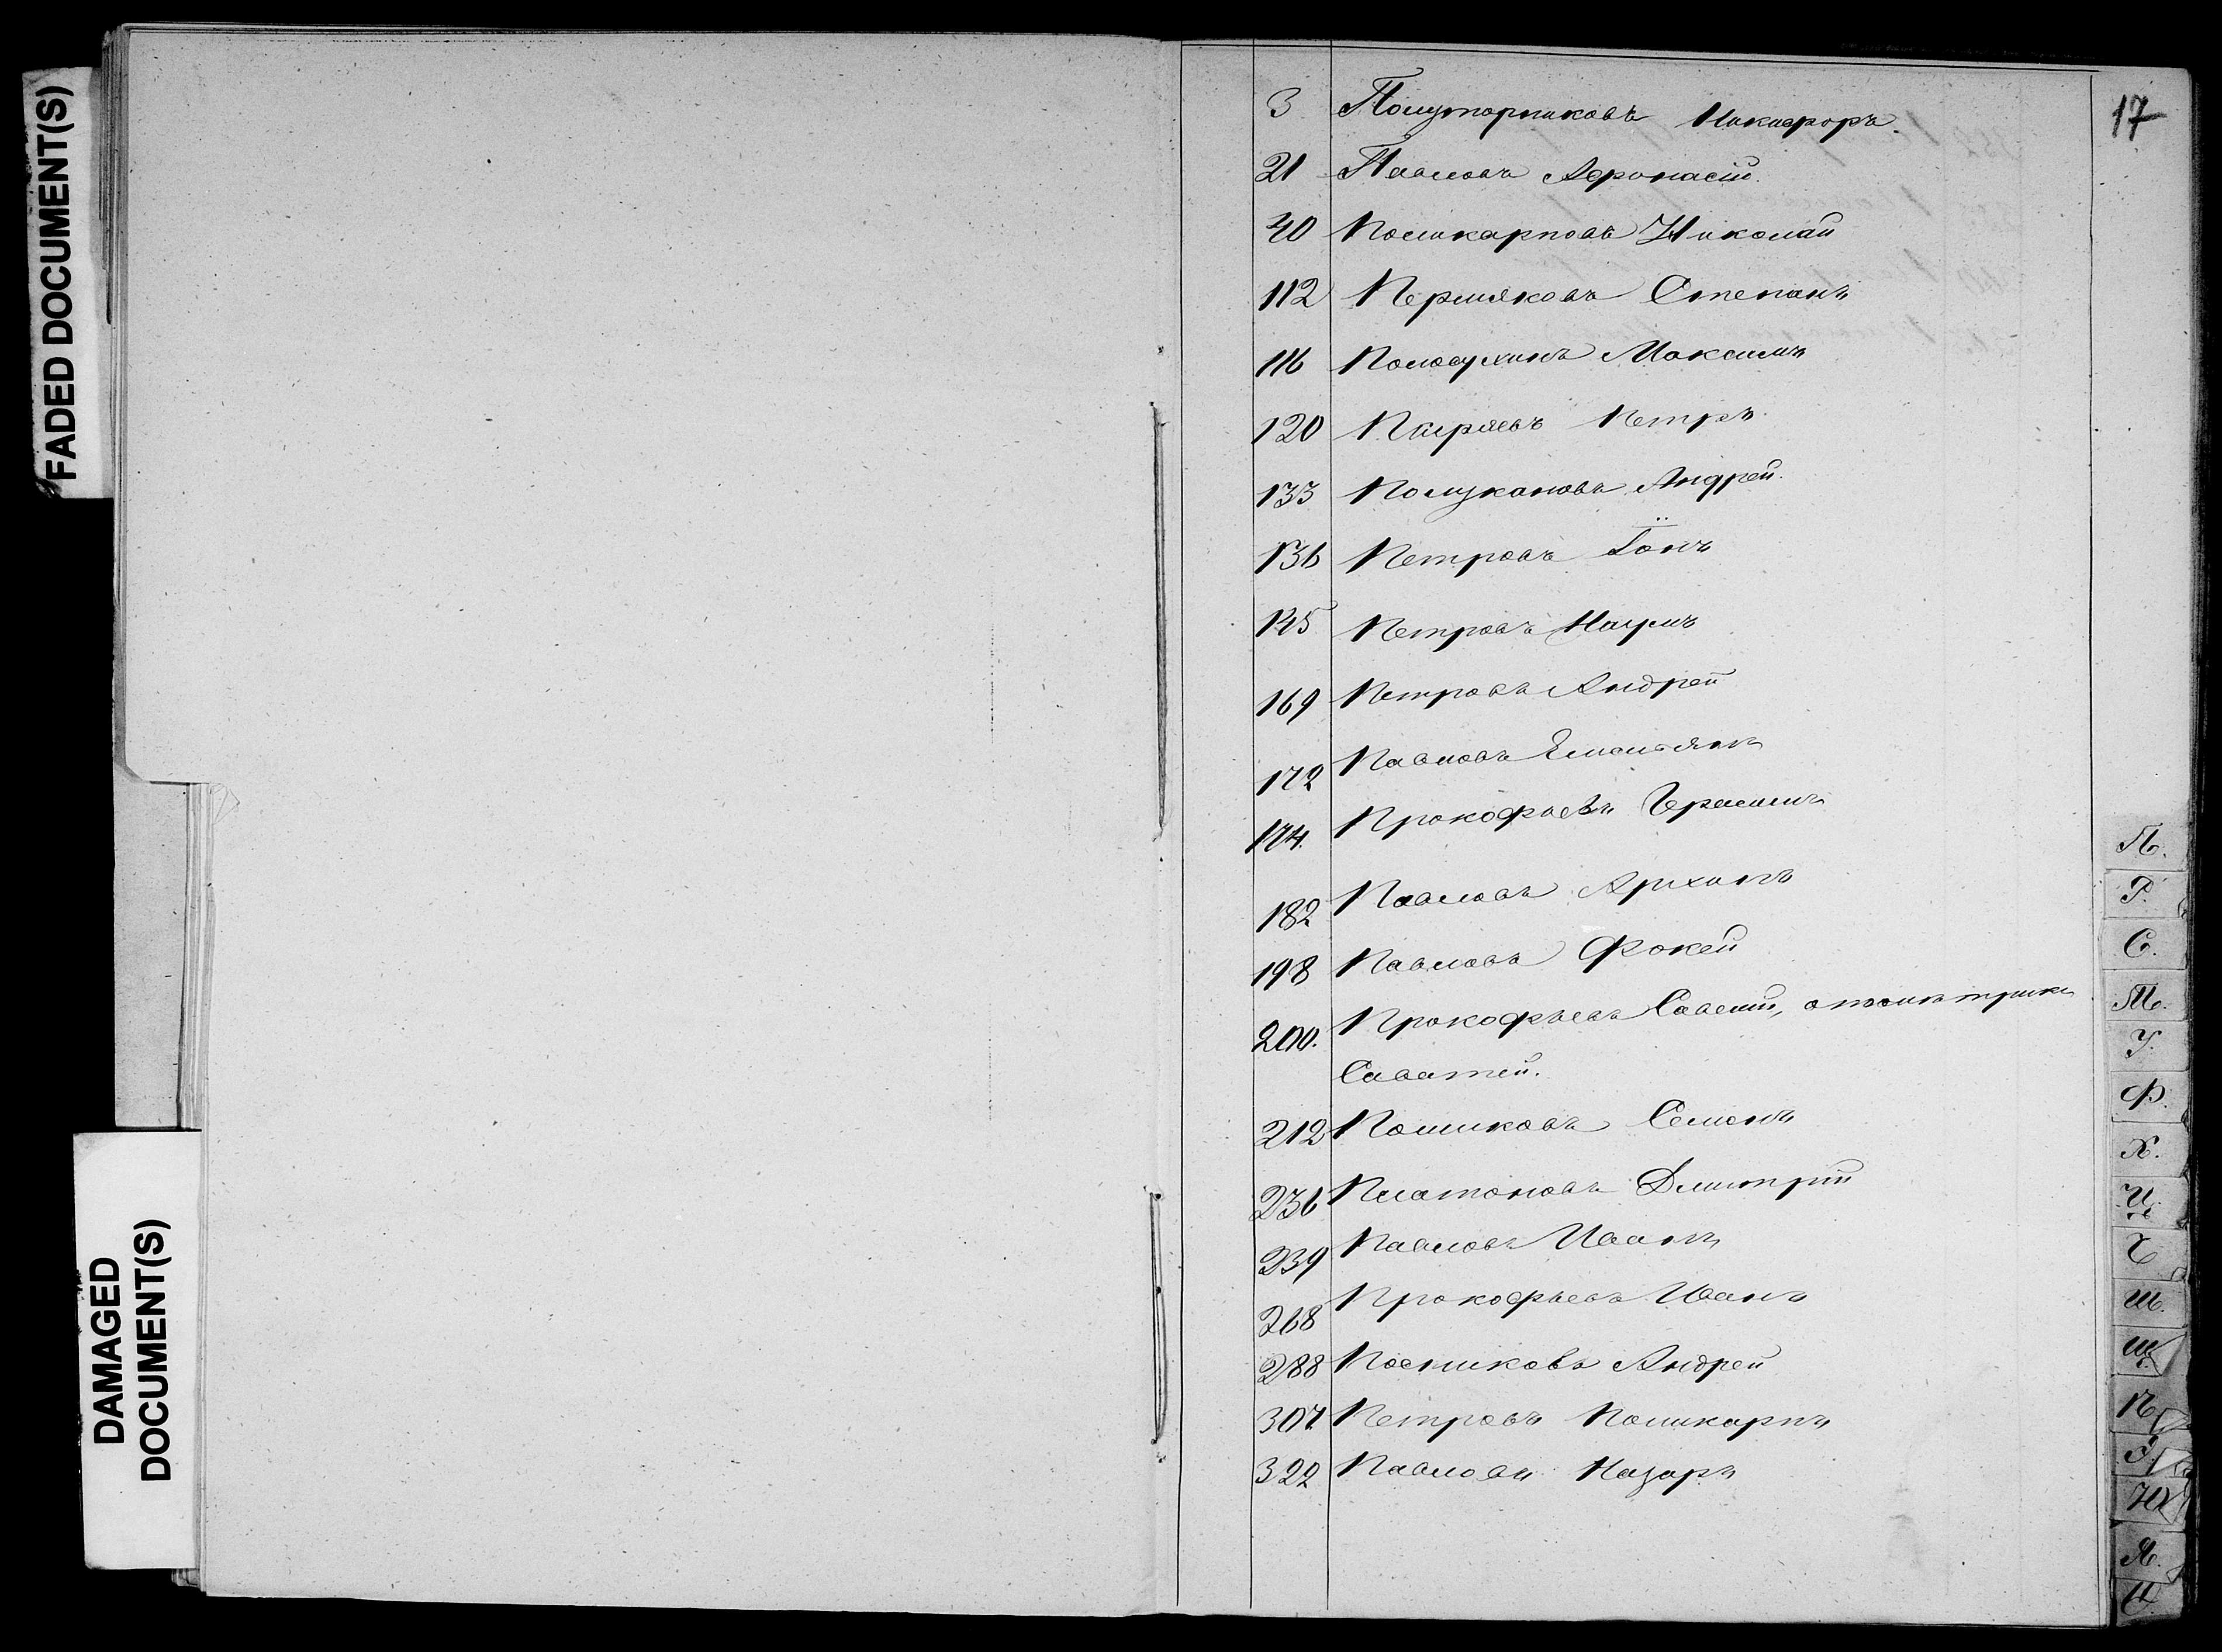 FADED DOCUMENT(S)
DAMAGED
DOCUMENT(S)
17
3 Полуторниковъ Никифоръ.
21 Павловъ Афонасій.
40 Поликарповъ Николай
112 Пермяковъ Степанъ
116 Половухинъ Максимъ
120 Петръ
133 Полукановъ Андрей.
136 Петровъ Іонъ
145 Петровъ Наумъ
169 Петровъ Андрей
172 Павловъ Емельянъ
174. Прокофьевъ Герасимъ
182 Павловъ Архипъ
198 Павловъ Фокей
200. Прокофьевъ Савелій,
Саватей.
212 Пошиковъ Семенъ
236 Платоновъ Дмитрій
239 Павловъ Иванъ
268 Прокофьевъ Иванъ
288 Постниковъ Андрей
307 Петровъ Поликарпъ
322 Павловъ Назаръ
П.
Р.
С.
Т.
У.
Ф.
Х.
Ц.
Ч
Ш.
Щ.
Э.
Ю
Я.